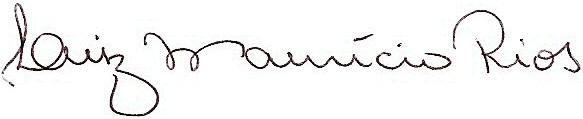 Luiz Maurício Rios